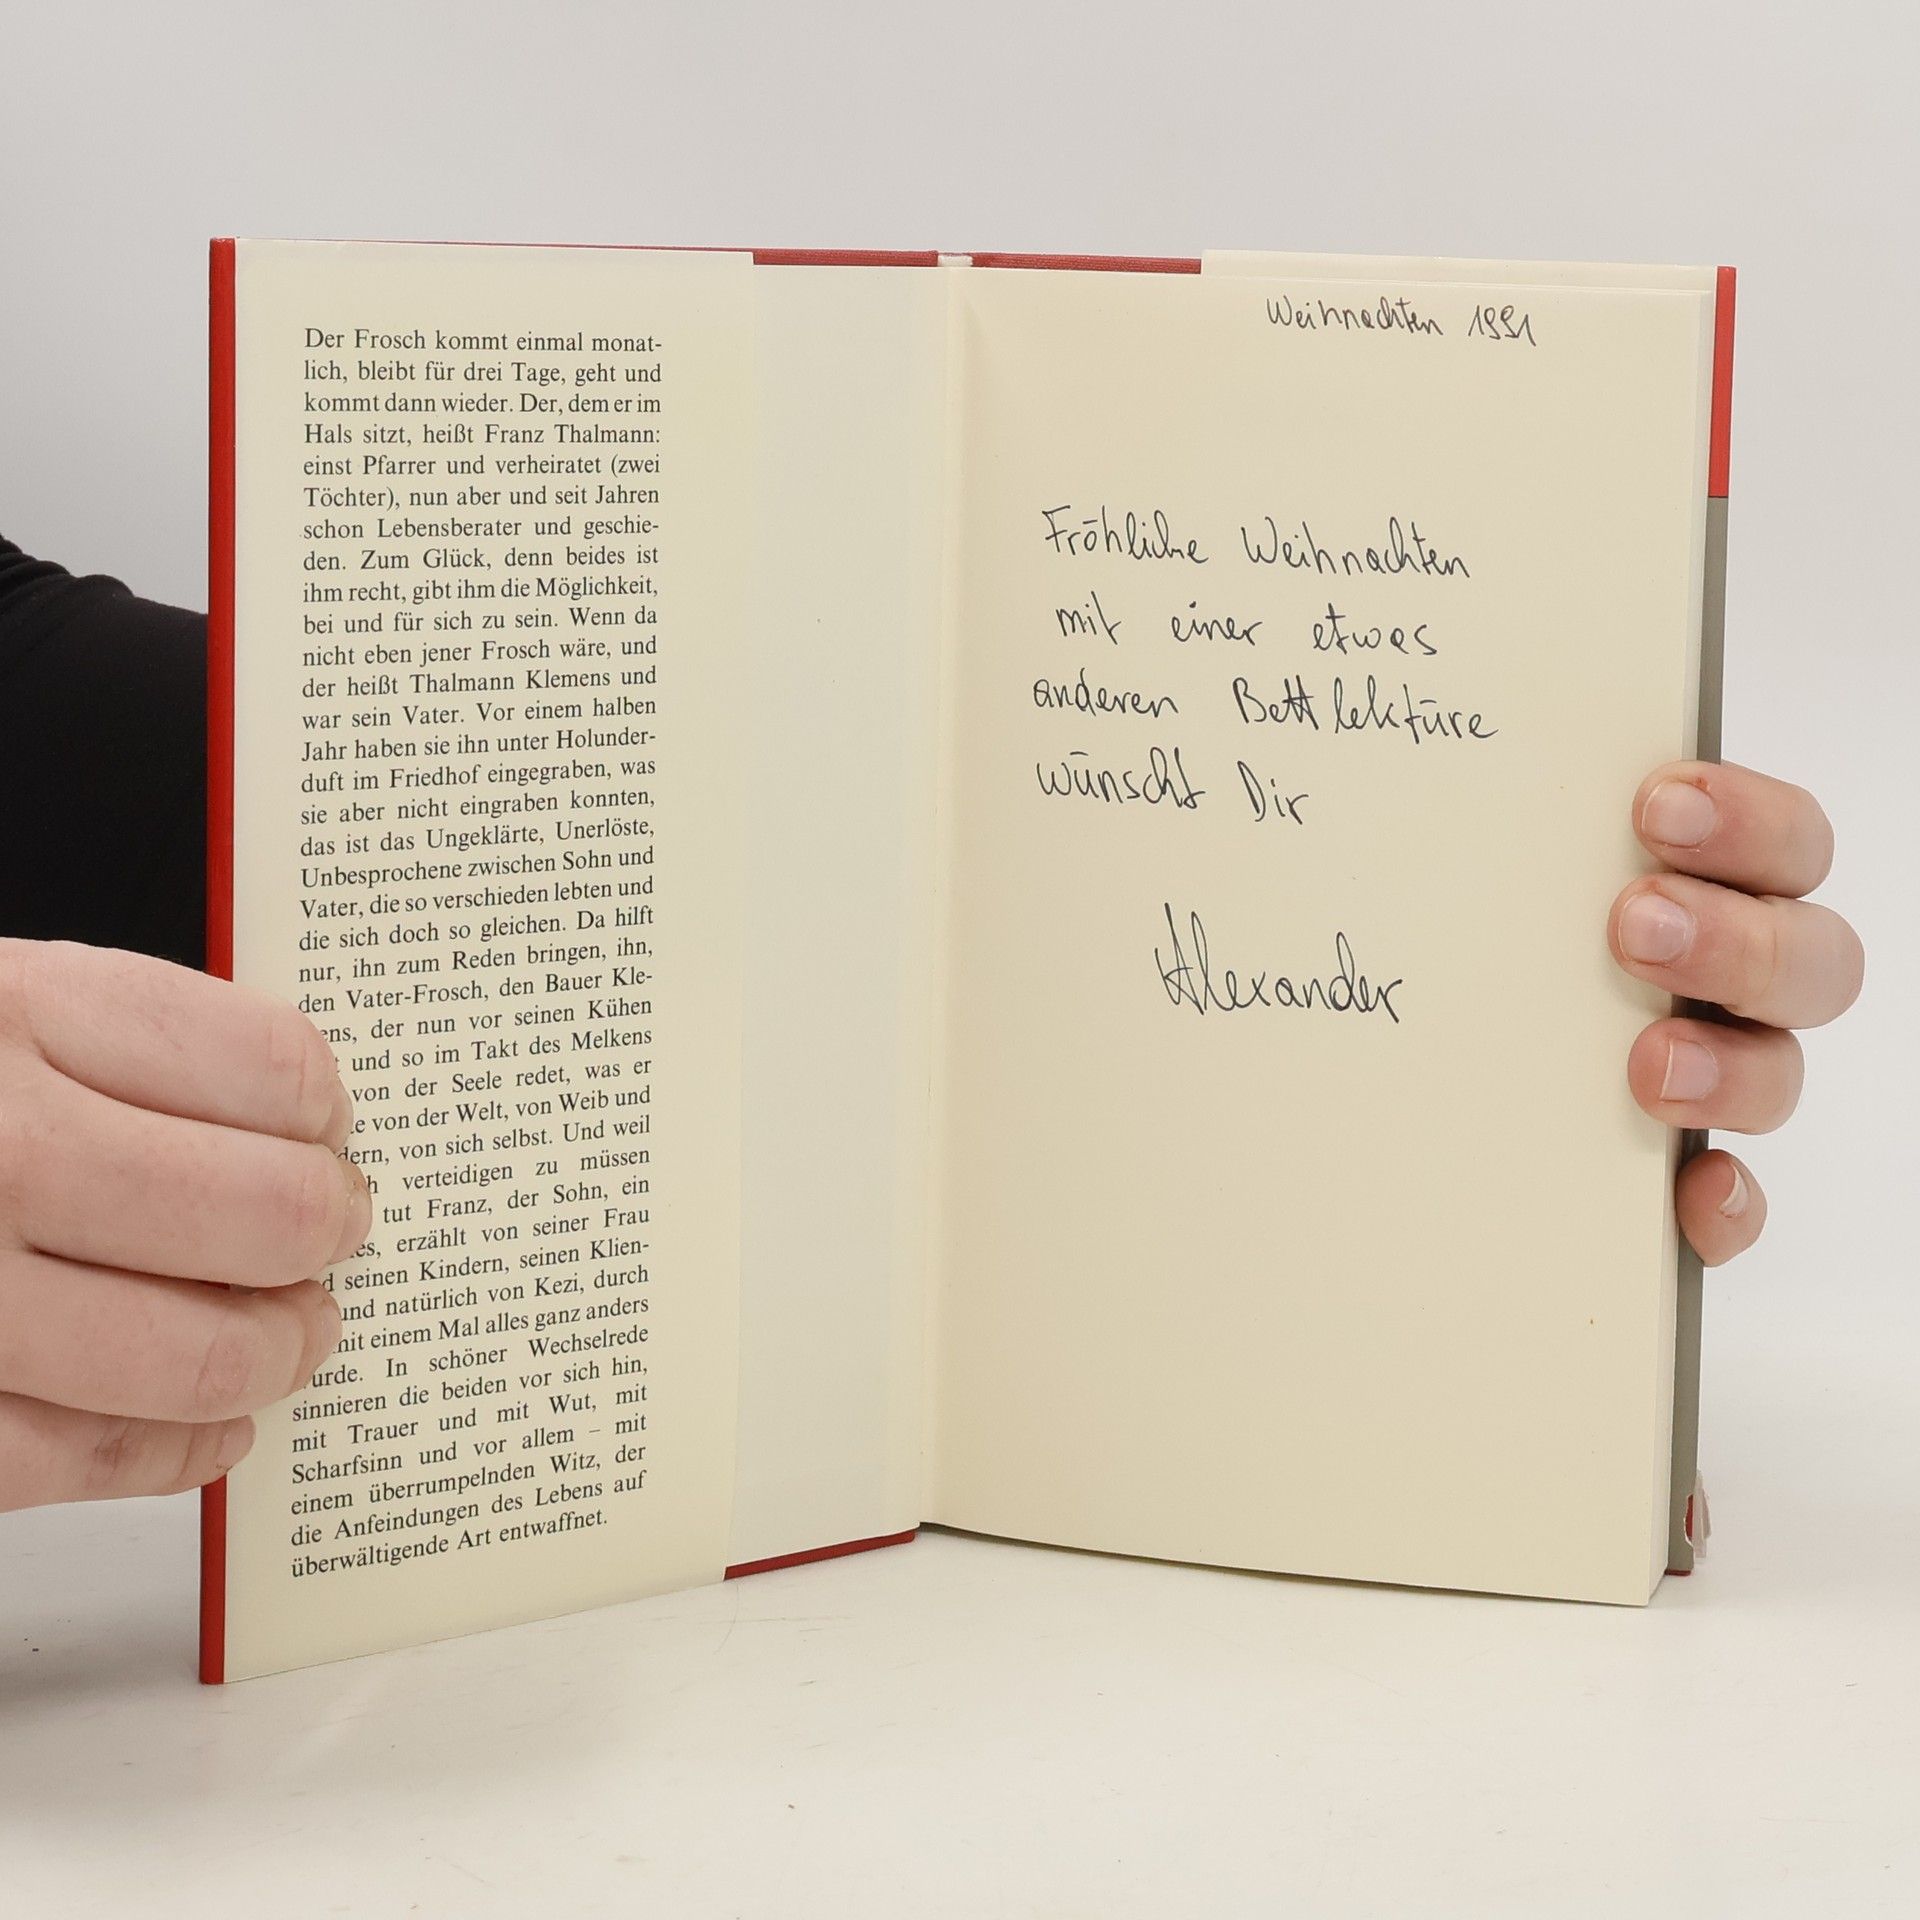 Der Frosch kommt einmal monat-
lich, bleibt für drei Tage, geht und
kommt dann wieder. Der, dem er im
Hals sitzt, heißt Franz Thalmann:
einst Pfarrer und verheiratet (zwei
Töchter), nun aber und seit Jahren
schon Lebensberater und geschie-
den. Zum Glück, denn beides ist
ihm recht, gibt ihm die Möglichkeit,
bei und für sich zu sein. Wenn da
nicht eben jener Frosch wäre, und
der heißt Thalmann Klemens und
war sein Vater. Vor einem halben
Jahr haben sie ihn unter Holunder-
duft im Friedhof eingegraben, was
sie aber nicht eingraben konnten,
das ist das Ungeklärte, Unerlöste,
Unbesprochene zwischen Sohn und
Vater, die so verschieden lebten und
die sich doch so gleichen. Da hilft
nur, ihn zum Reden bringen, ihn,
den Vater-Frosch, den Bauer Kle-
ens, der nun vor seinen Kühen
und so im Takt des Melkens
von der Seele redet, was er
von der Welt, von Weib und
dern, von sich selbst. Und weil
verteidigen zu müssen
tut Franz, der Sohn, ein
es, erzählt von seiner Frau
d seinen Kindern, seinen Klien-
und natürlich von Kezi, durch
mit einem Mal alles ganz anders
urde. In schöner Wechselrede
sinnieren die beiden vor sich hin,
mit Trauer und mit Wut, mit
Scharfsinn und vor allem – mit
einem überrumpelnden Witz, der
die Anfeindungen des Lebens auf
überwältigende Art entwaffnet.
Weihnachten 1991
Fröhliche Weihnachten
mit einer etwas
anderen Bettlektüre
wünscht Dir
Alexander